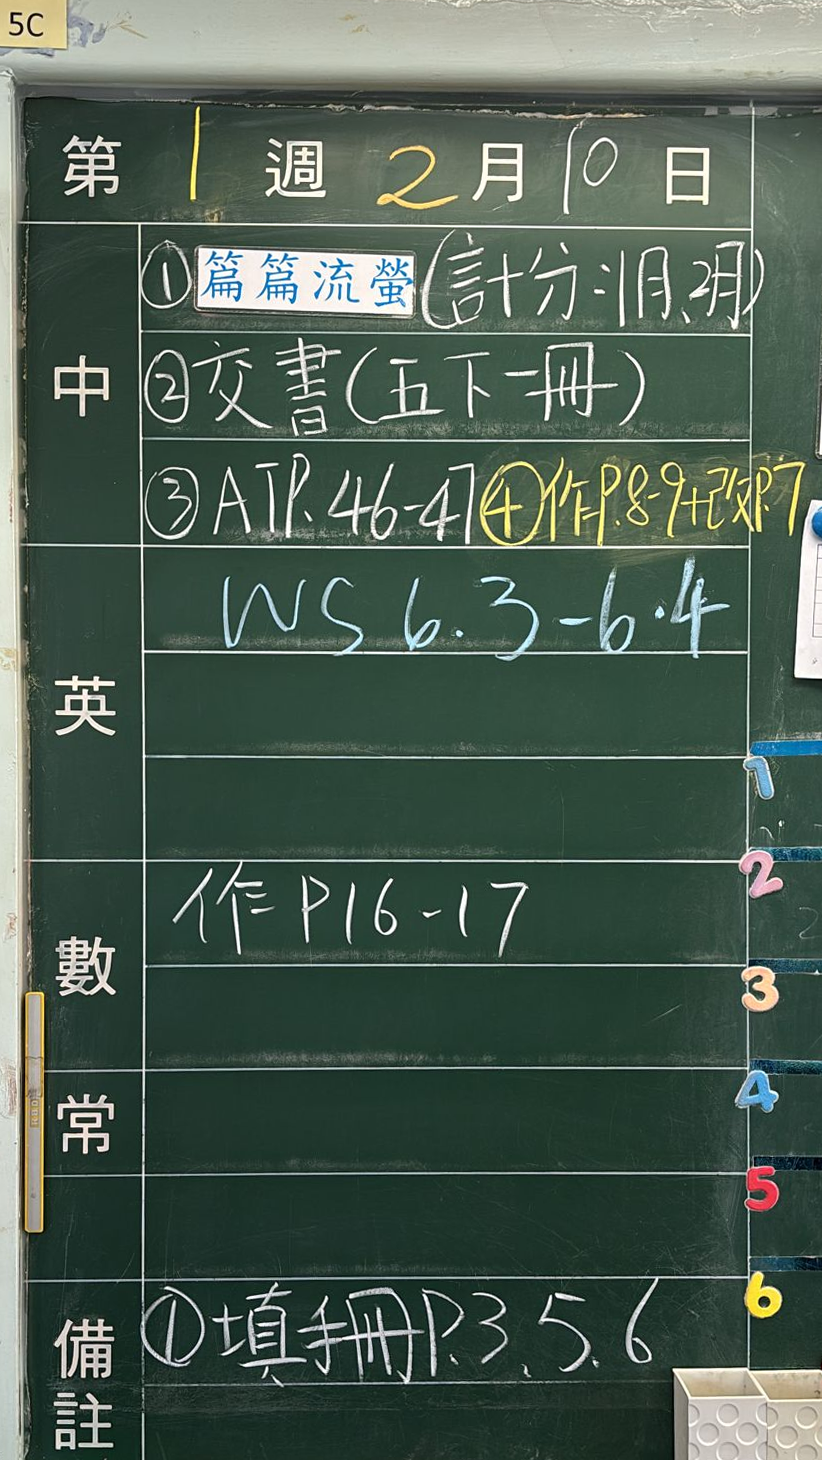 5C
第 1 週 2 月 10 日
中
① 篇篇流螢 (計分:1月、2月)
② 交書(五下一冊)
③ ATP. 46-47 ④作P.8-9+改P.7
英
WS 6.3-6.4
數
作 P16-17
常
備註
① 填手冊P.3、5、6
1
2
3
4
5
6